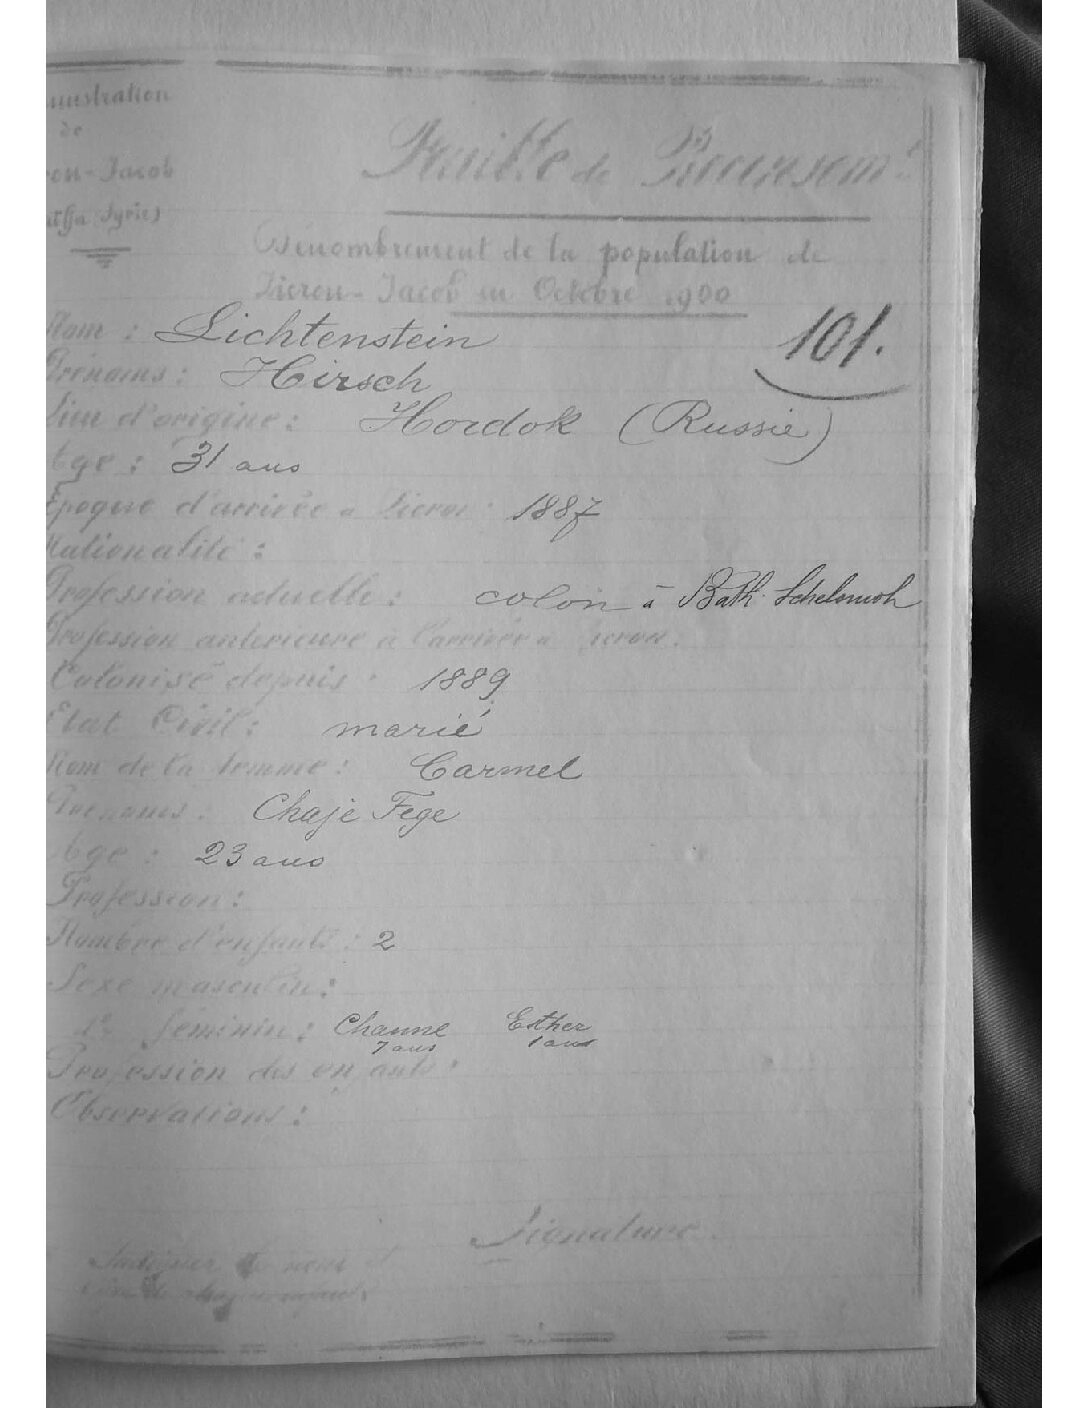 ministration
de
ron-Jacob
aïffa Syrie)
Feuille de Recensemt
Dénombrement de la population de
Zicron-Jacob en Octobre 1900
101.
Nom : Lichtenstein
Prénoms : Hirsch
Lieu d'origine : Hordok (Russie)
Age : 31 ans
Epoque d'arrivée a Zicron : 1887
Nationalité :
Profession actuelle : colon à Bath. Schelomoh
Profession antérieure à l'arrivée a Zicron.
Colonisé depuis : 1889
Etat Civil : marié
Nom de la femme : Carmel
Prénoms : Chaje Fege
Age : 23 ans
Profession :
Nombre d'enfants : 2
Sexe masculin :
do féminin : Channe Esther
7 ans 1 ans
Profession des enfants :
Observations :
Signature
Indiquer le nom et